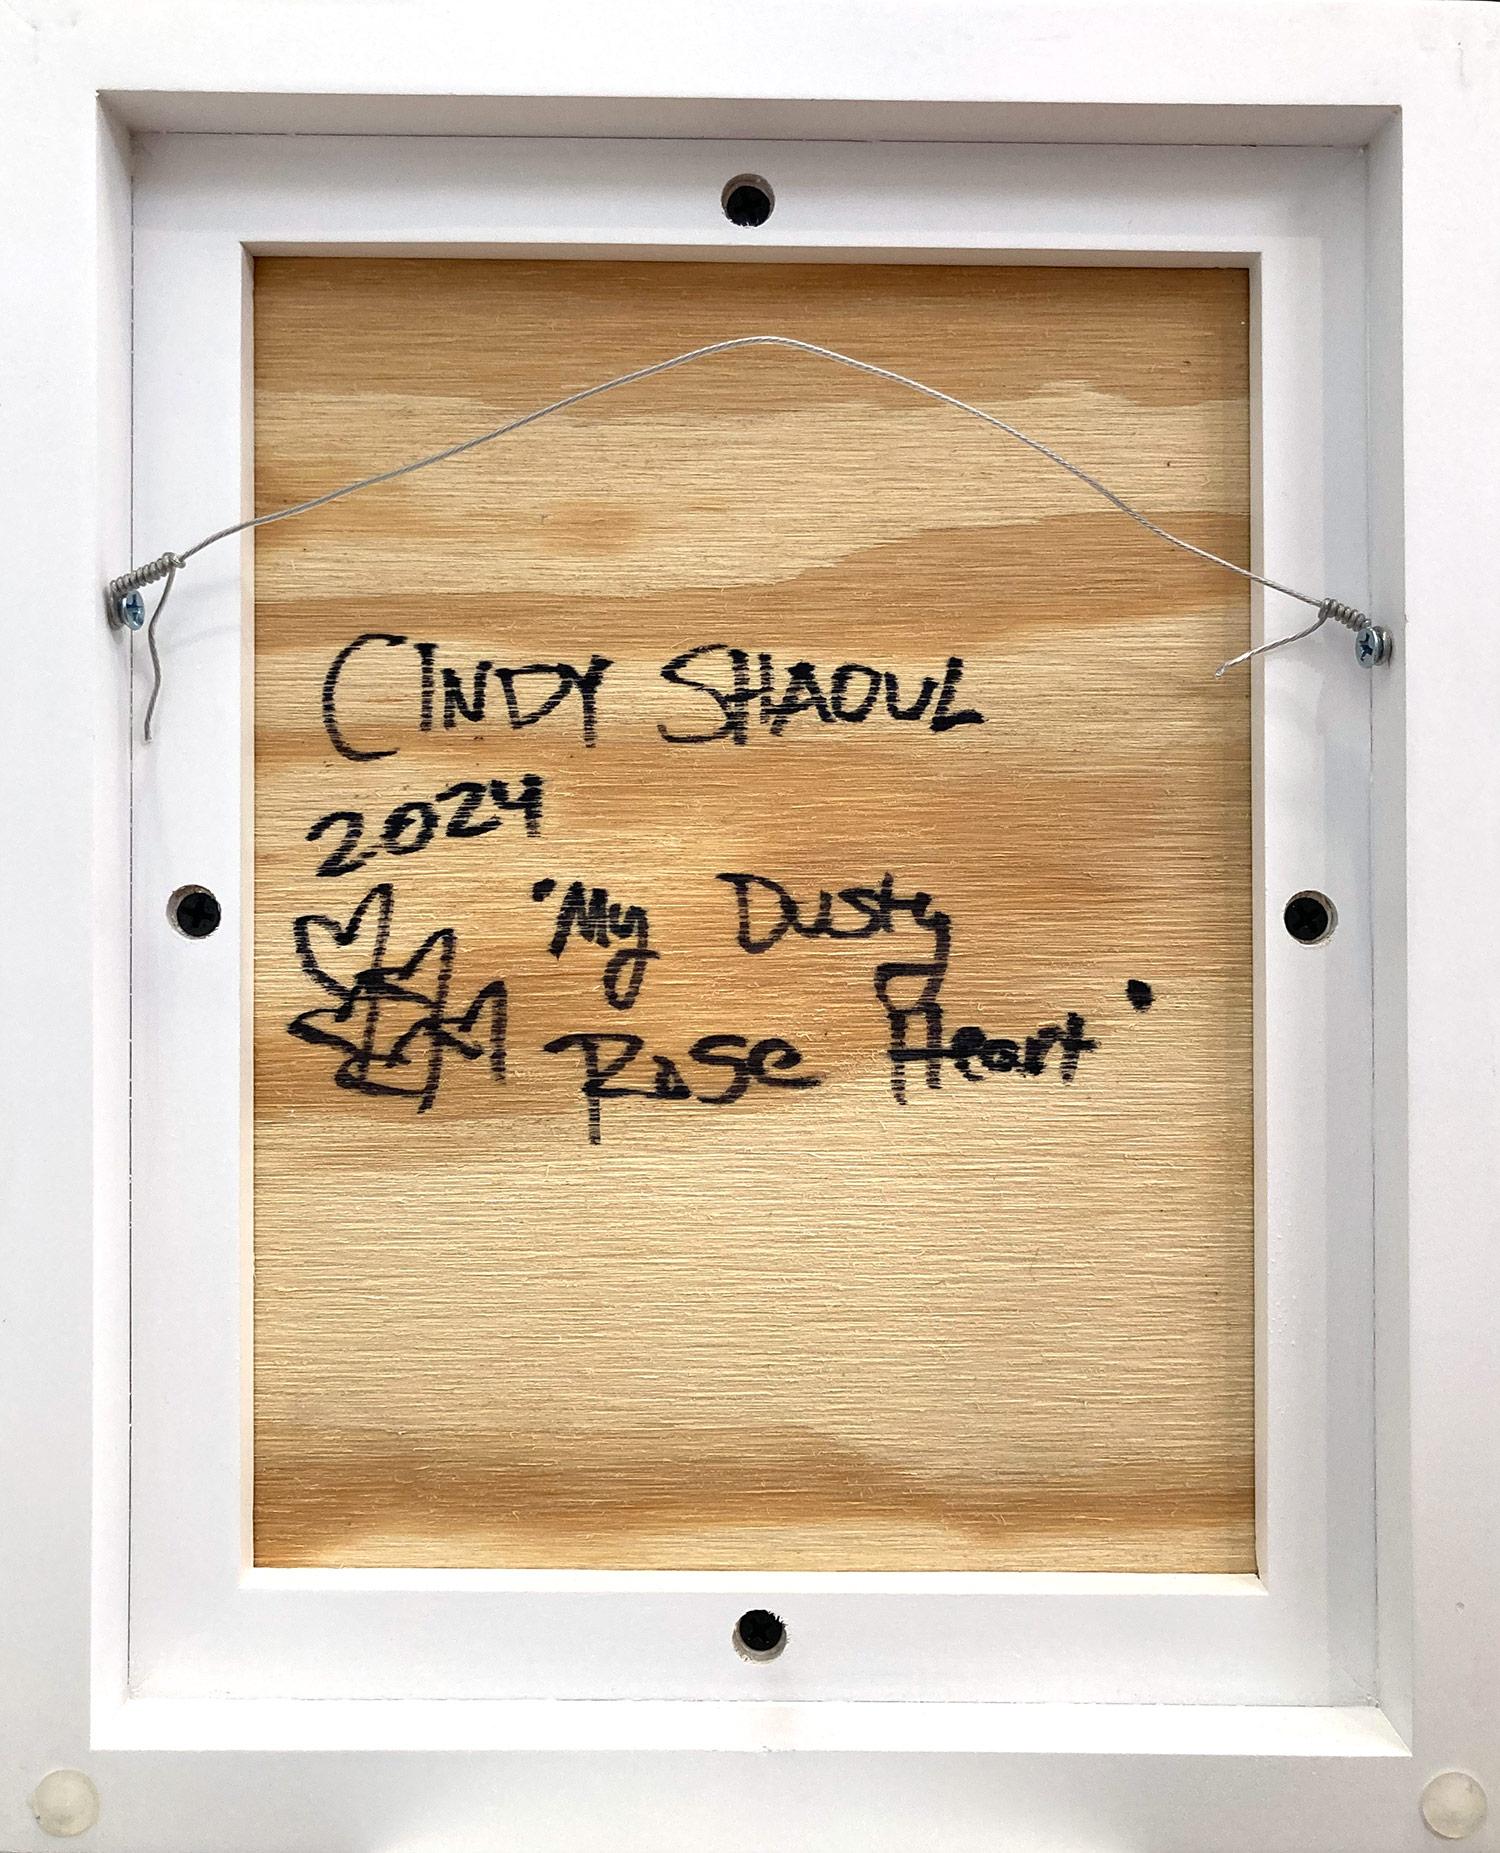 CINDY SHAOUL
2024
"My Dusty
Rose Heart"